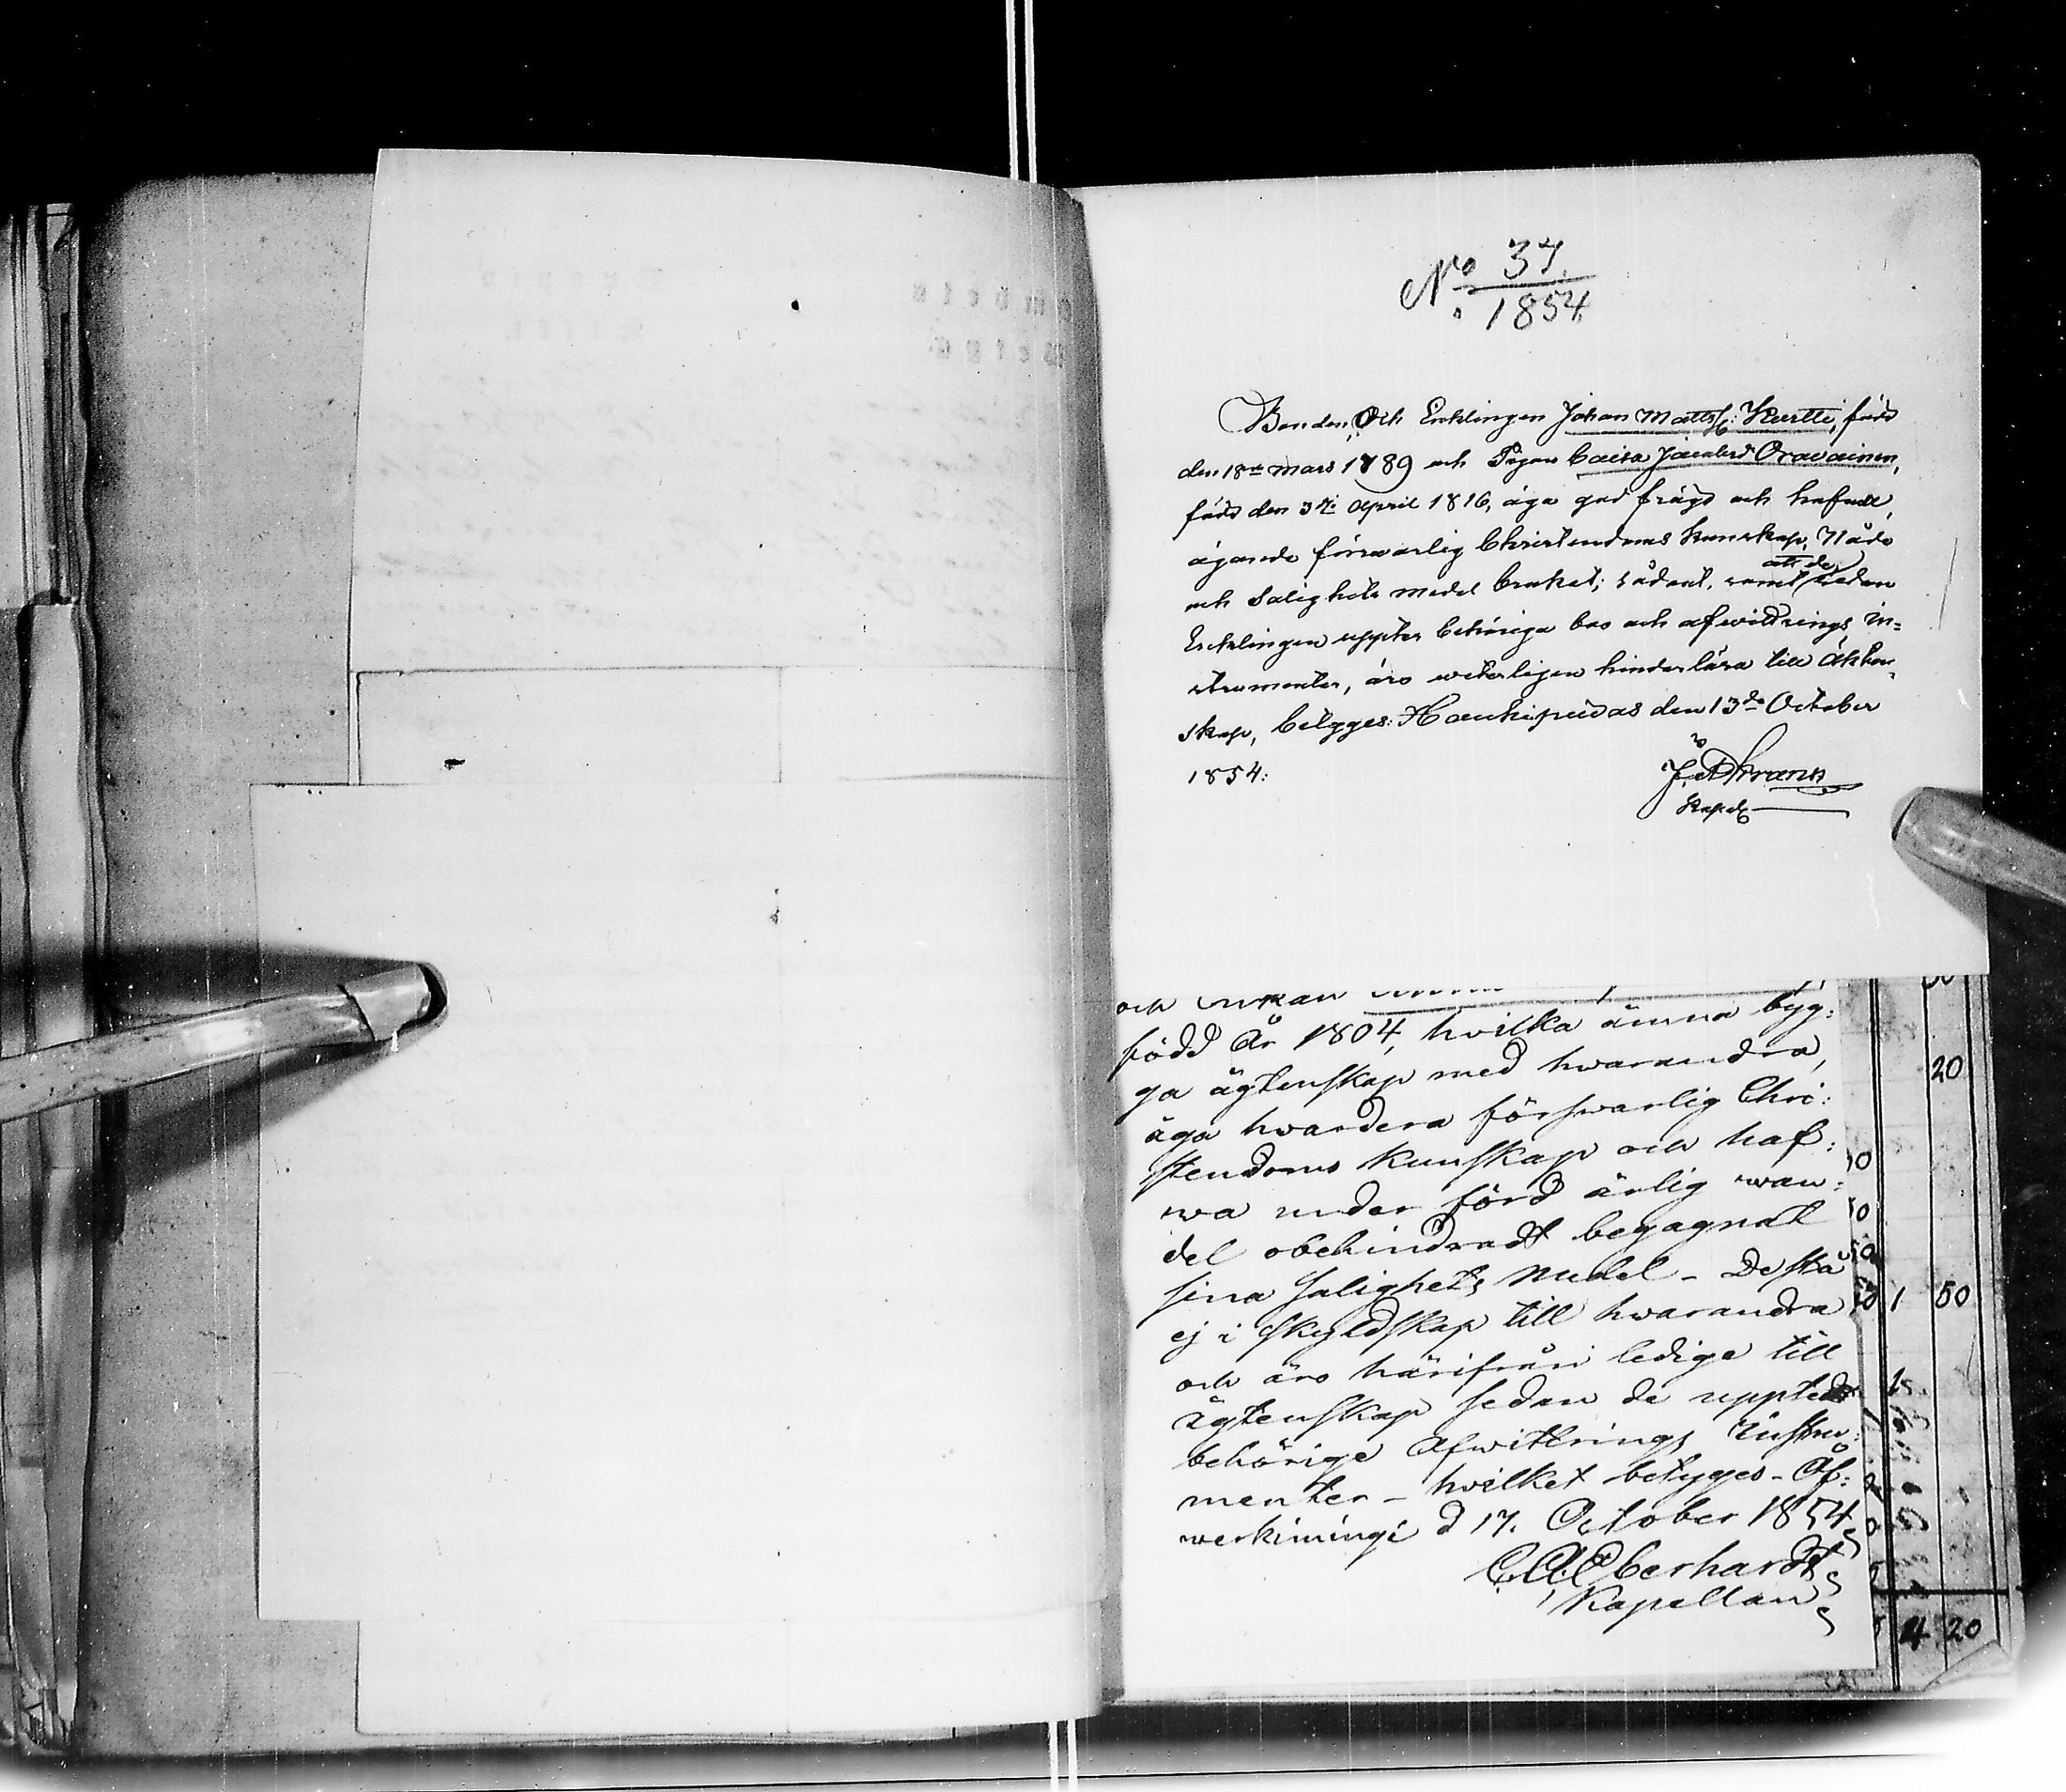 No 37
1854
Bonden, Och Enklingen Johan Mattss: Kurtti, född
den 18de mars 1789 och Pigan Caisa Jacobsd Oravainen,
född den 3dje April 1816, äga god frägd och hafwa,
ägande förswarlig Christendoms kunskap, Nåde
och Salighets medel brukat; sådant, samt att de, sedan
Enklingen uppter behöriga bro och afwittrings in=
strumenter, äro weterligen hinderlösa till Äkten-
skap, betyges: Haukipudas den 13de October
1854:
Kapel
och Enkan
född År 1804, hvilka ämna byg:
ga ägtenskap med hwarandra,
äga hwardera förswarlig Chri:
stendoms kunskap och haf:
wa under förd ärlig wan:
del obehindradt begagnat
sina Salighets Medel - De stå
ej i Skyldskap till hwarandra
och äro härifrån ledige till
ägtenskap sedan de uppted
behörige Afwittrings Instru:
menter - hvilket betyges - Öf:
werkimingi d 17. October 1854
C. A. Eberhardt
Kapellan
20
1 50
4 20